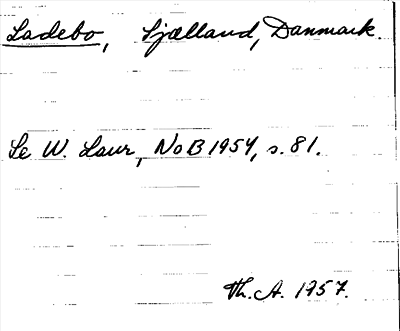 Ladebo, Sjælland, Danmark.
Se W. Laur, NoB 1954, s. 81.
Th. A. 1957.